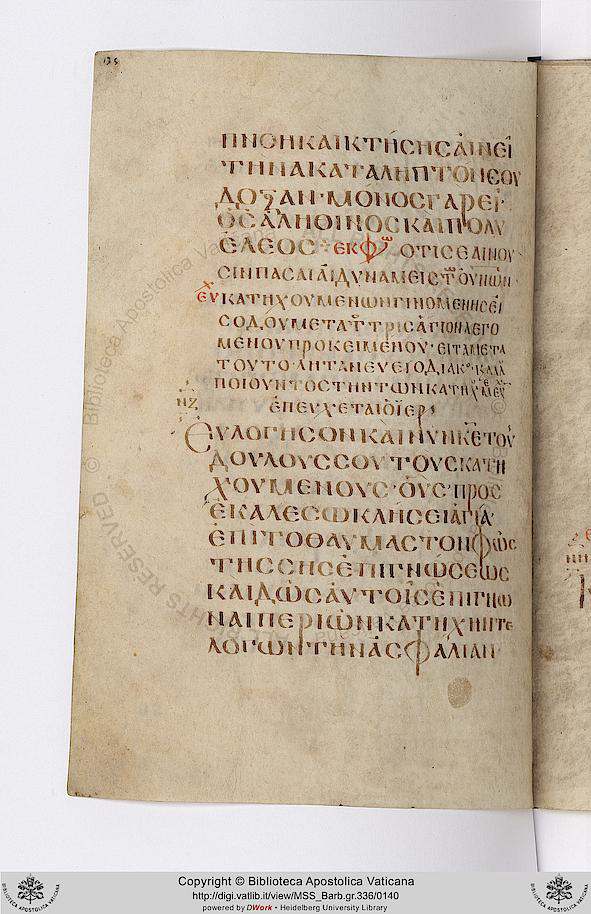 ΠΝΟΗ ΚΑΙ ΚΤΗΣΗΣ ΑΙΝΕΙ
ΤΗΝ ΑΚΑΤΑΛΗΠΤΟΝ ΣΟΥ
ΔΟΞΑΝ· ΜΟΝΟΣ ΓΑΡ ΕΙ
Ο ΑΛΗΘΙΝΟΣ ΚΑΙ ΠΟΛΥ
ΕΛΕΟΣ ΕΚΦ ΟΤΙ ΣΕ ΑΙΝΟΥ
ΣΙΝ ΠΑΣΑΙ ΑΙ ΔΥΝΑΜΕΙΣ
ΕΥΧ ΚΑΤΗΧΟΥΜΕΝΩΝ ΓΙΝΟΜΕΝΗΣ ΕΙ
ΣΟΔΟΥ ΜΕΤΑ Τ ΤΡΙΣΑΓΙΟΝ ΛΕΓΟ
ΜΕΝΟΥ ΠΡΟΚΕΙΜΕΝΟΥ· ΕΙΤΑ ΜΕΤΑ
ΤΟΥΤΟ ΛΗΤΑΝΕΥΕΙ Ο ΔΙΑΚ·
ΠΟΙΟΥΝΤΟΣ ΤΗΝ ΤΩΝ ΚΑΤΗΧ
ΕΠΕΥΧΕΤΑΙ Ο ΙΕΡ
ΕΥΛΟΓΗΣΟΝ ΚΑΙ ΝΥΝ ΚΕ ΤΟΥ
ΔΟΥΛΟΥΣ ΣΟΥ ΤΟΥΣ ΚΑΤΗ
ΧΟΥΜΕΝΟΥΣ· ΟΥΣ ΠΡΟΣ
ΕΚΑΛΕΣΩ ΚΛΗΣΕΙ ΑΓΙΑ
ΕΠΙ ΤΟ ΘΑΥΜΑΣΤΟΝ ΦΩΣ
ΤΗΣ ΣΗΣ ΕΠΙΓΝΩΣΕΩΣ
ΚΑΙ ΔΩΣ ΑΥΤΟΙΣ ΕΠΙΓΝΩ
ΝΑΙ ΠΕΡΙ ΩΝ ΚΑΤΗΧΗΝΤΕ
ΛΟΓΩΝ ΤΗΝ ΑΣΦΑΛΙΑΝ
Copyright © Biblioteca Apostolica Vaticana
http://digi.vatlib.it/view/MSS_Barb.gr.336/0140
powered by DWork - Heidelberg University Library